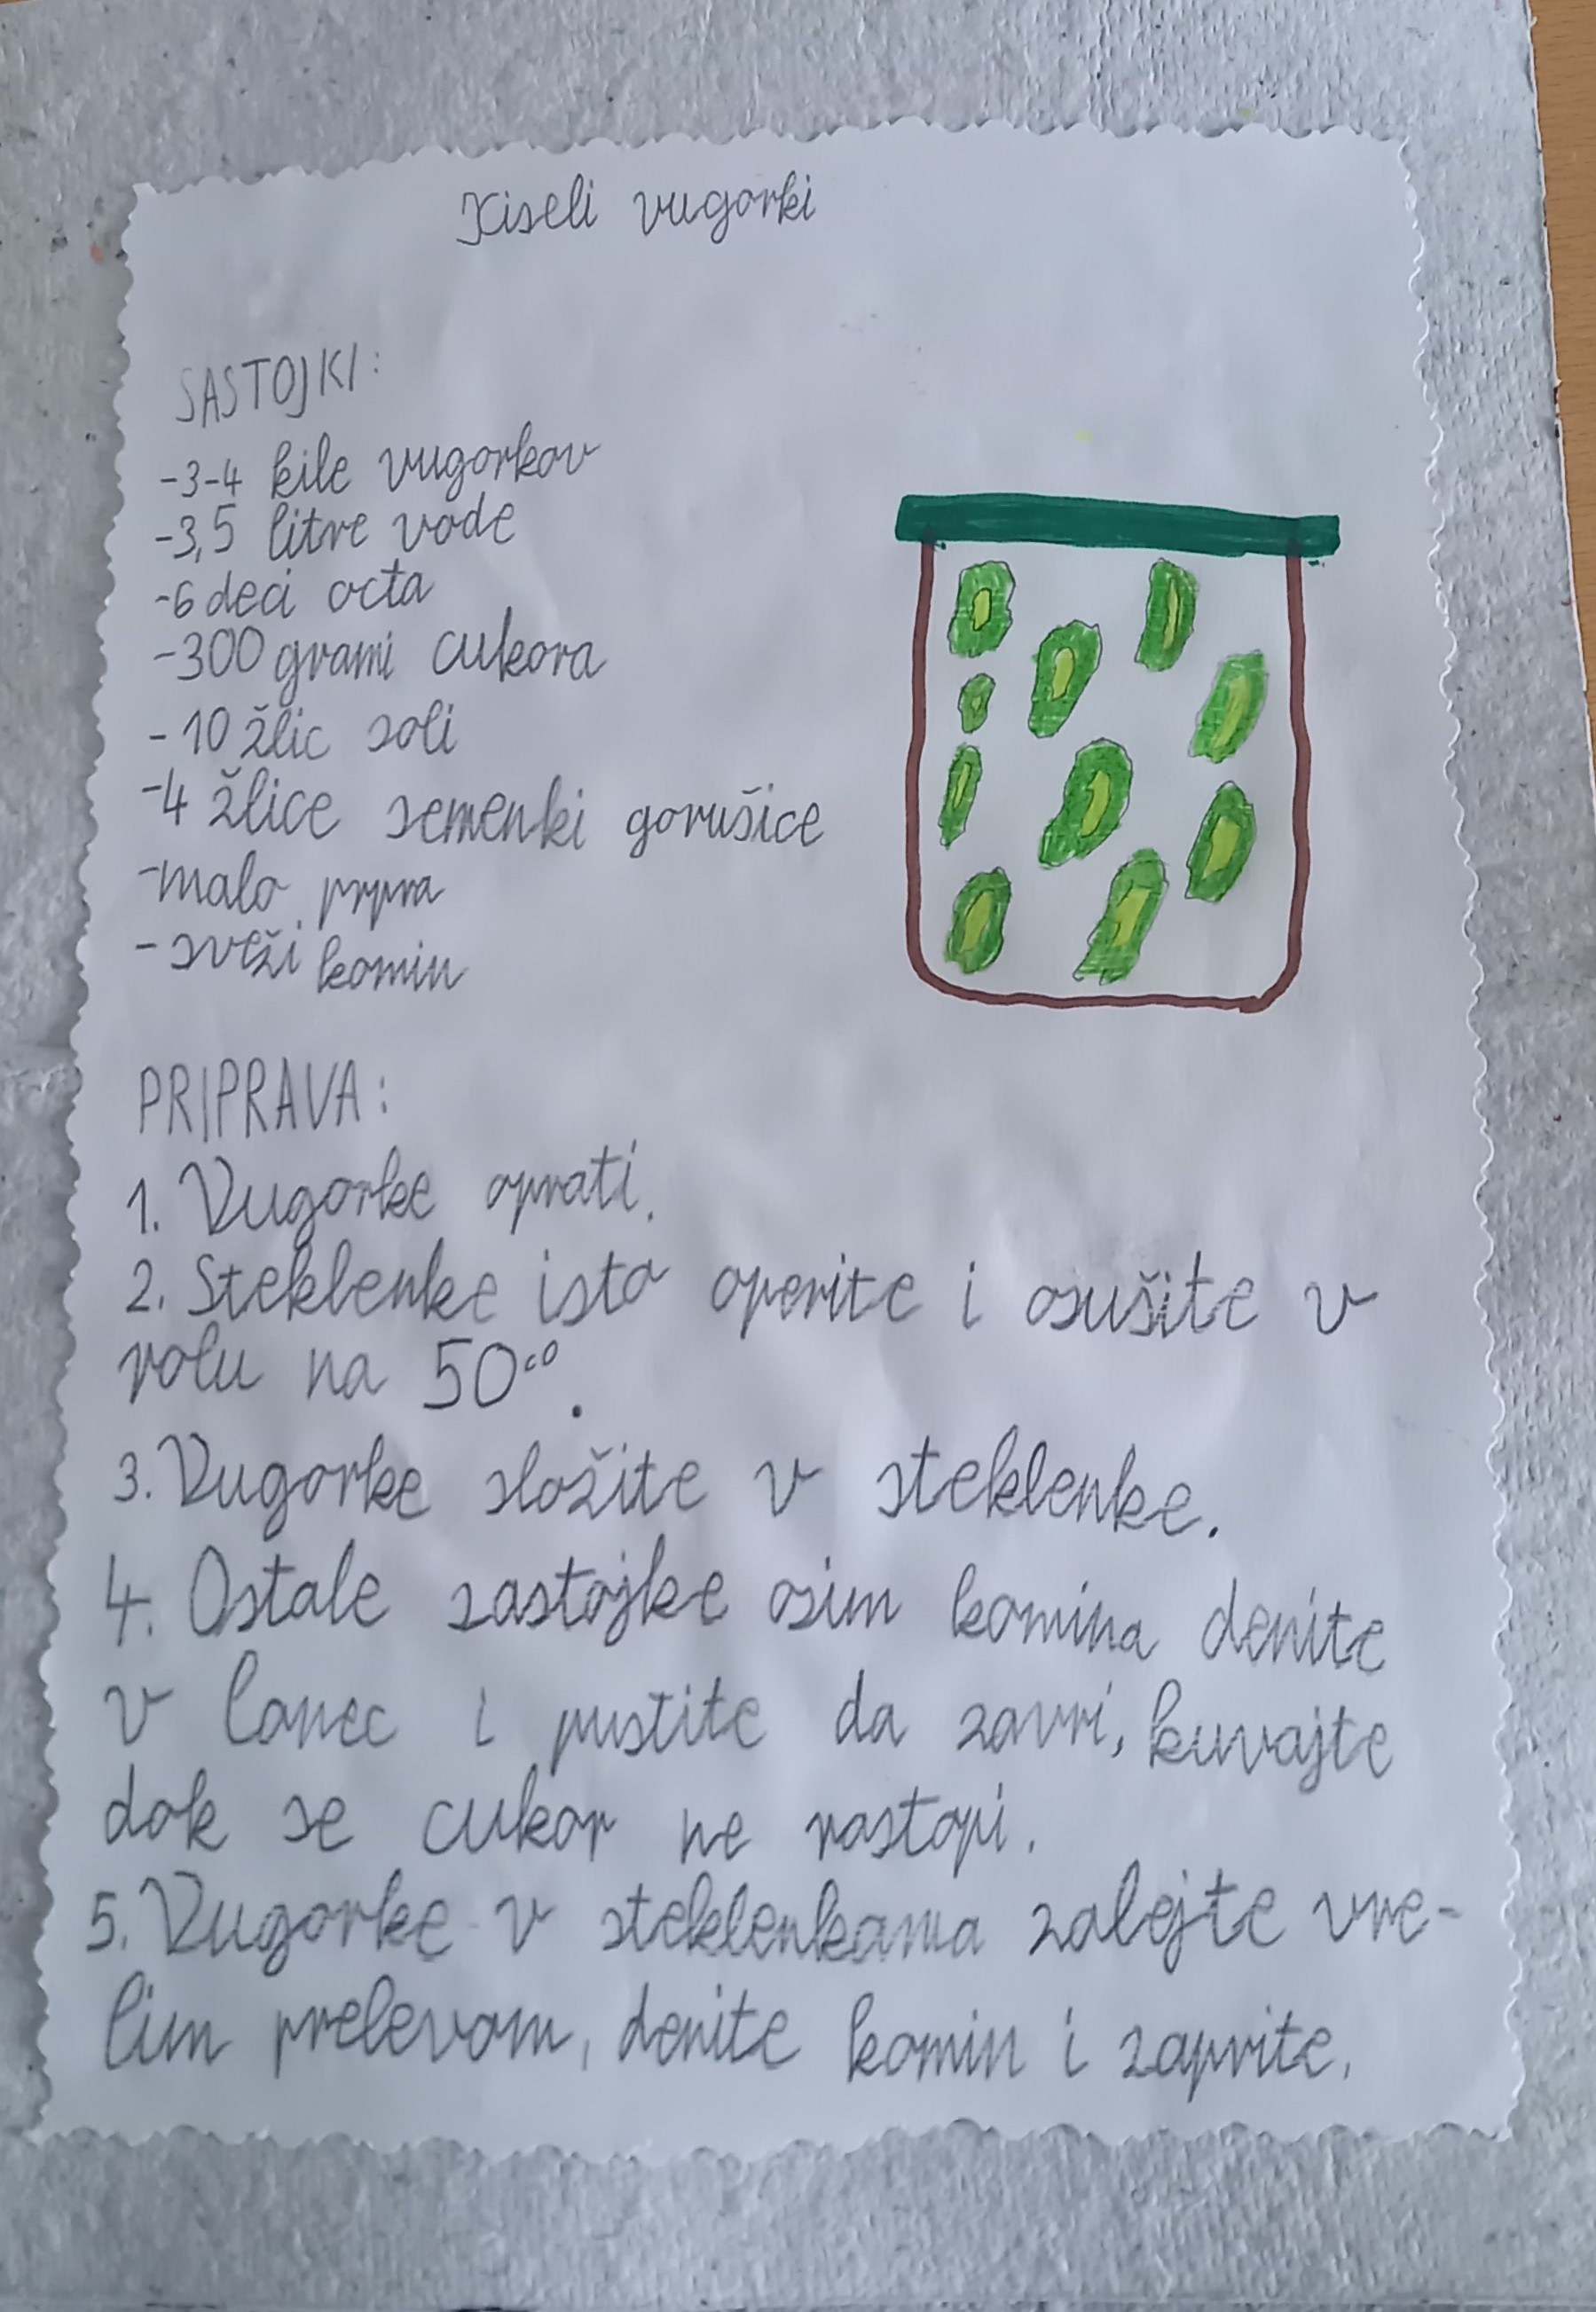 Kiseli vugorki
SASTOJKI:
-3-4 kile vugorkov
-3,5 litre vode
-6 deci octa
-300 grami cukora
- 10 žlic soli
-4 žlice semenki gorušice
-malo prpra
- sveži komin
PRIPRAVA:
1. Vugorke oprati.
2. Steklenke isto operite i osušite v
rolu na 50°C.
3. Vugorke složite v steklenke.
4. Ostale sastojke osim komina denite
v lonec i pustite da zavri, kuvajte
dok se cukor ne rastopi.
5. Vugorke v steklenkama zalejte vre-
lim prelevom, denite komin i zaprite.